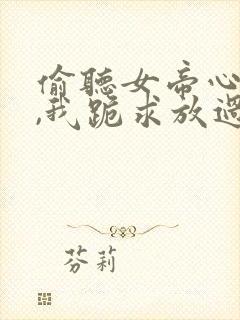 偷聽女帝心
,我跪求放過
芬莉